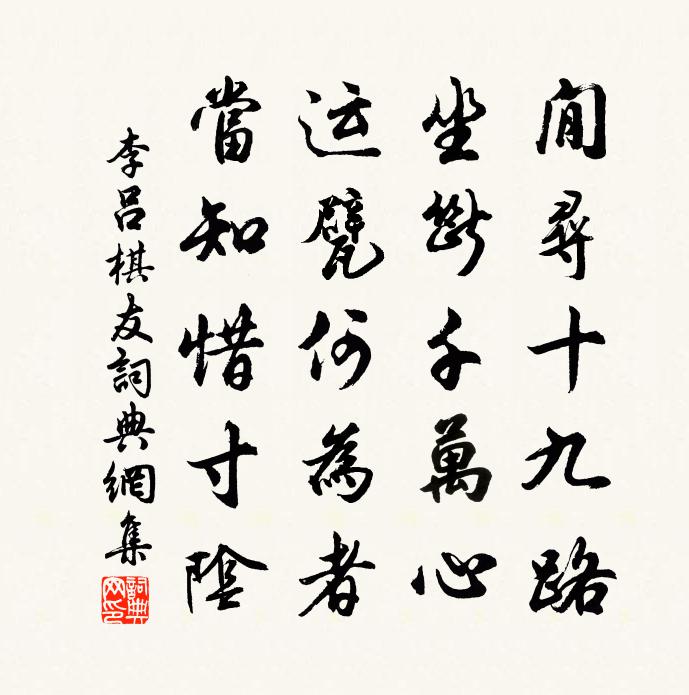 閒尋十九路
坐斷千萬心
运甓何為者
當知惜寸陰
李呂棋友詞典網集
詞典网印